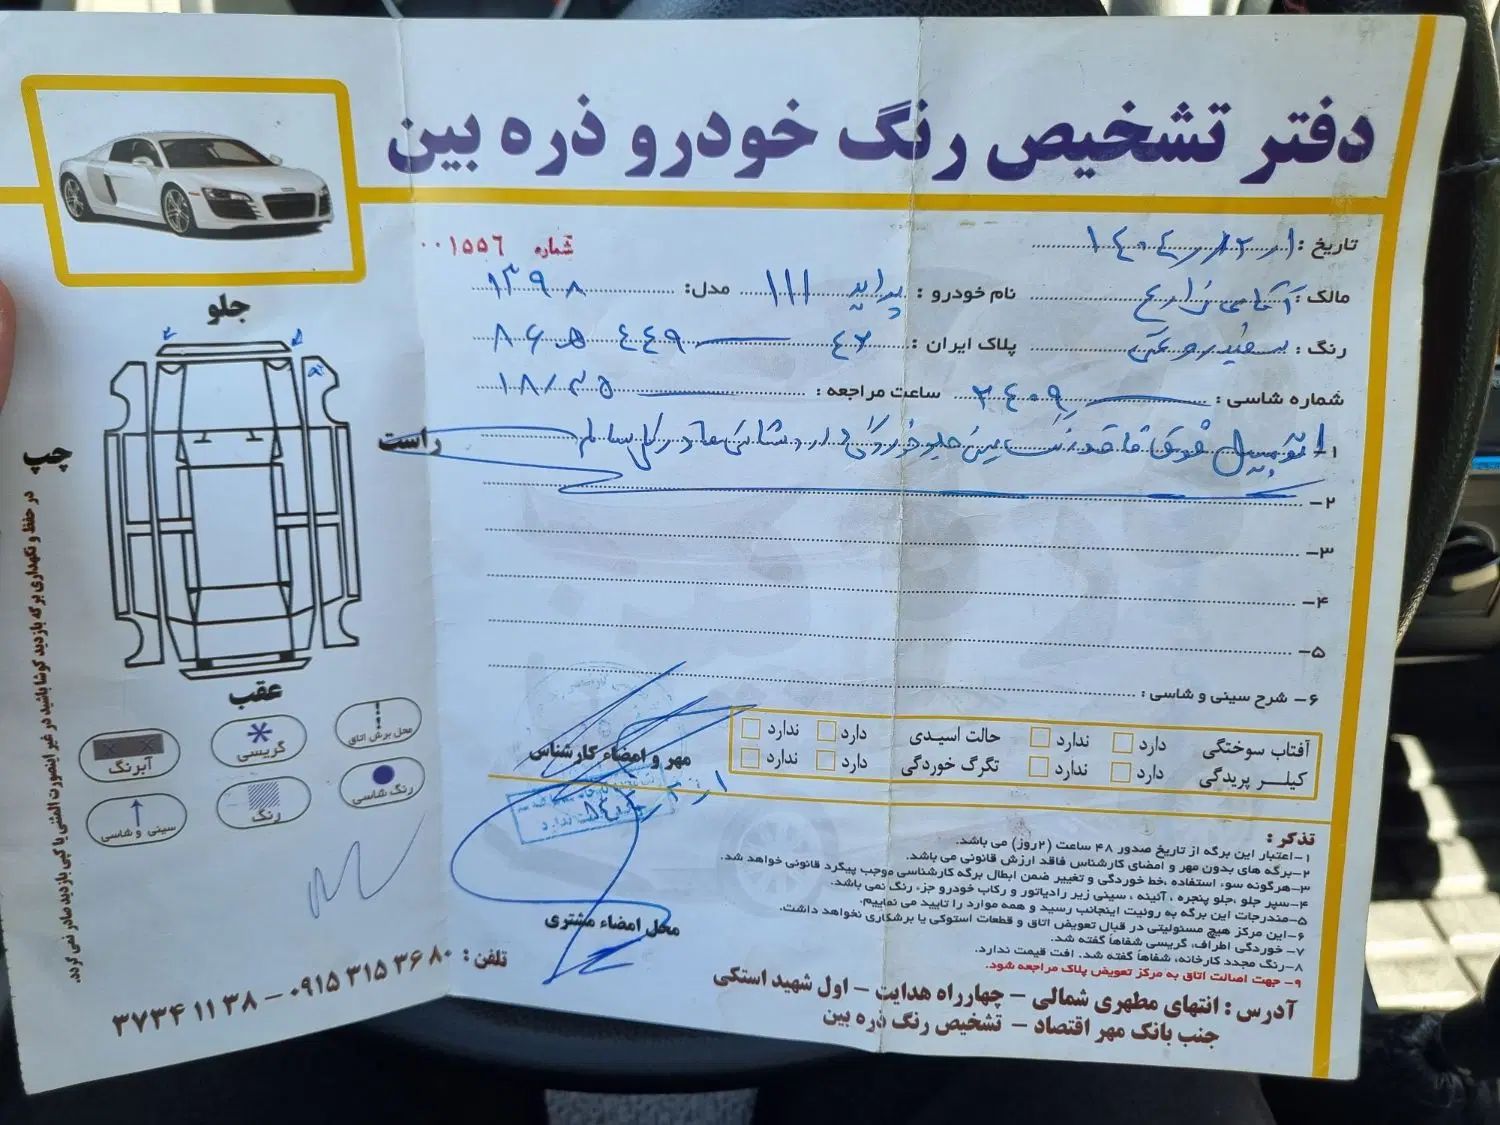 دفتر تشخیص رنگ خودرو ذره بین
شماره ۰۰۱۵۵۶
تاریخ :
مالک : آقای زارع
نام خودرو : پراید ۱۱۱
مدل: ۱۳۹۸
رنگ : سفید روغنی
پلاک ایران :
شماره شاسی :
ساعت مراجعه :
۱- اتومبیل فوق فاقد رنگ سینی جلو خوردگی دارد شاسی ها در کل سالم
۲-
۳-
۴-
۵-
۶- شرح سینی و شاسی :
آفتاب سوختگی دارد ندارد حالت اسیدی دارد ندارد
کیلر پریدگی دارد ندارد تگرگ خوردگی دارد ندارد
مهر و امضاء کارشناس
محل امضاء مشتری
تذکر :
۱-اعتبار این برگه از تاریخ صدور ۴۸ ساعت (۲روز) می باشد.
۲-برگه های بدون مهر و امضای کارشناس فاقد ارزش قانونی می باشد.
۳-هرگونه سوء استفاده ،خط خوردگی و تغییر ضمن ابطال برگه کارشناسی موجب پیگرد قانونی خواهد شد.
۴-سپر جلو ،جلو پنجره ، آئینه ، سینی زیر رادیاتور و رکاب خودرو جزء رنگ نمی باشد.
۵-مندرجات این برگه به روئیت اینجانب رسید و همه موارد را تایید می نماییم.
۶-این مرکز هیچ مسئولیتی در قبال تعویض اتاق و قطعات استوکی یا برشکاری نخواهد داشت.
۷- خوردگی اطراف، گریسی شفاهاً گفته شد.
۸-رنگ مجدد کارخانه، شفاهاً گفته شد. افت قیمت ندارد.
۹- جهت اصالت اتاق به مرکز تعویض پلاک مراجعه شود.
آدرس : انتهای مطهری شمالی - چهارراه هدایت - اول شهید استکی
جنب بانک مهر اقتصاد - تشخیص رنگ ذره بین
جلو
چپ
راست
عقب
محل برش اتاق
گریسی
آبرنگ
رنگ شاسی
رنگ
سینی و شاسی
تلفن : ۰۹۱۵ ۳۱۵ ۳۶ ۸۰ - ۳۷۳۴ ۱۱ ۳۸
در حفظ و نگهداری برگه بازدید کوشا باشید در غیر اینصورت المثنی یا کپی بازدید صادر نمی گردد.